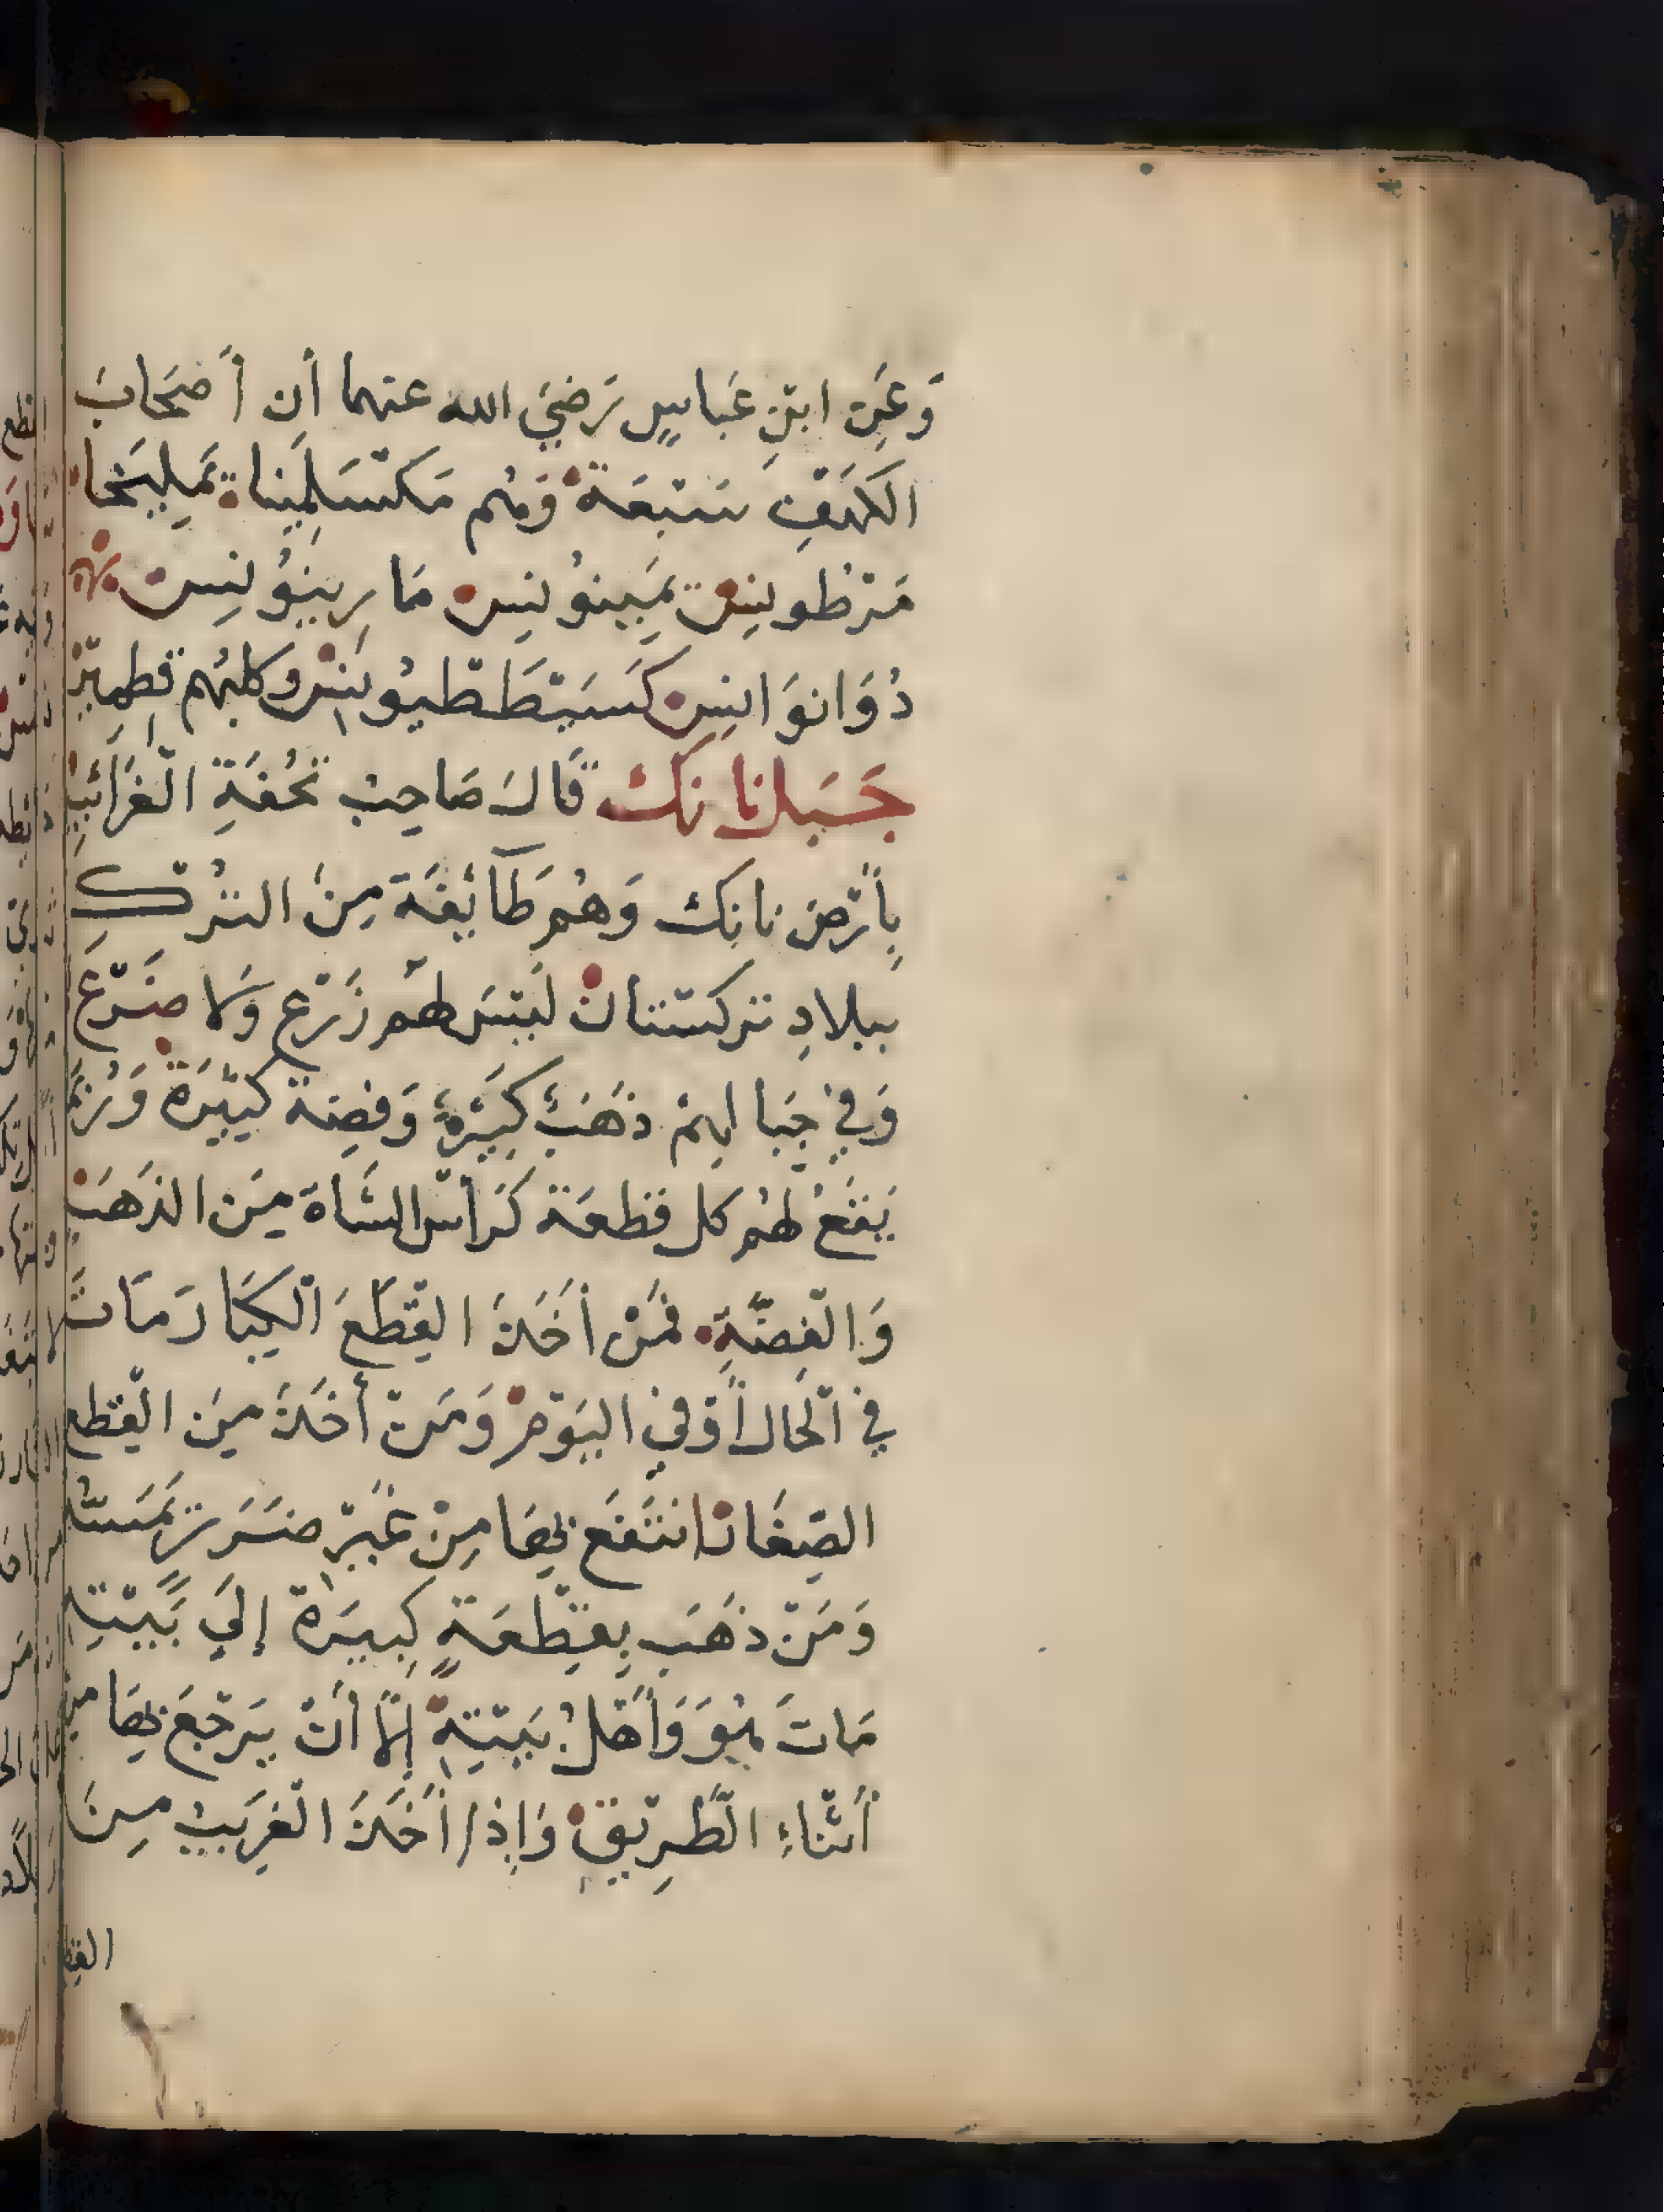 وَعَنِ ابْنِ عَبَاسٍ رَضِيَ الله عنهما أن أَصْحَابَ
الكَهْفِ سَبْعَة وَهُم مَكْسَلْمِينا يَمْلِيخا
مَرْطُونِس يَمِينوُنِس مَارِينوُنِس
دُوَانوَانِس كَسَيْطَطْيُونِس وكلبُهم قطمِيْرٌ
جَبَل نانك قَالَ صَاحِبُ تُحْفَةِ الْغَرَائِبِ
بِأَرْضِ نانِك وَهُم طَآئِفَة مِنَ التُرْكِ
ببلادِ تركستان لَيْسَ لهُم زَرْع وَلا ضَرْع
وَفي جِبَالِهِمْ ذَهَبٌ كَبِيْرَة وَفضة كَبِيْرَة وَرُبَّمَا
يَقَعُ لهُم كل قطعَة كَرَأس الشَاة مِنَ الذَهَبِ
وَالْفِضَّةِ فَمَنْ أَخَذَ القِطَعَ الْكِبَارَ مَاتَ
في الْحَال أَوْ في اليَوْمِ وَمَنْ أَخَذَ مِنَ الْقِطع
الصِّغَار انتَفَعَ بِهَا مِنْ غَيْرِ ضَرَرٍ يَمَسّهُ
وَمَنْ ذَهَبَ بِقِطْعَةٍ كَبِيرَة إلى بَيْتِهِ
مَاتَ هُوَ وَأَهْلُ بَيْتِهِ إلَّا أَنْ يَرْجَعَ بِهَا مِنْ
أَثْنَاءِ الطَّرِيْقِ وَإِذا أَخَذَ الْغَرِيبُ مِنَ
القِط